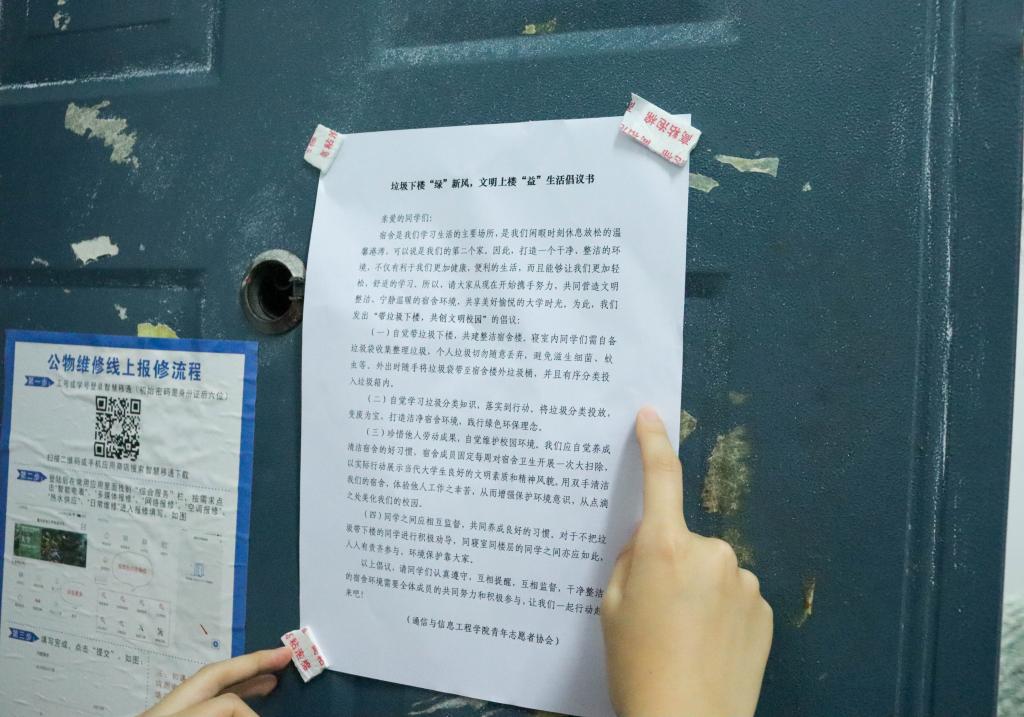 垃圾下楼“绿”新风，文明上楼“益”生活倡议书
亲爱的同学们：
宿舍是我们学习生活的主要场所，是我们闲暇时刻休息放松的温
馨港湾，可以说是我们的第二个家。因此，打造一个干净、整洁的环
境，不仅有利于我们更加健康、便利的生活，而且能够让我们更加轻
松、舒适的学习。所以，请大家从现在开始携手努力，共同营造文明
整洁、宁静温暖的宿舍环境，共享美好愉悦的大学时光。为此，我们
发出“带垃圾下楼，共创文明校园”的倡议：
（一）自觉带垃圾下楼，共建整洁宿舍楼。寝室内同学们需自备
垃圾袋收集整理垃圾，个人垃圾切勿随意丢弃，避免滋生细菌、蚊
虫等。外出时随手将垃圾袋带至宿舍楼外垃圾桶，并且有序分类投
入垃圾箱内。
（二）自觉学习垃圾分类知识，落实到行动。将垃圾分类投放，
变废为宝，打造洁净宿舍环境，践行绿色环保理念。
（三）珍惜他人劳动成果，自觉维护校园环境。我们应自觉养成
清洁宿舍的好习惯，宿舍成员固定每周对宿舍卫生开展一次大扫除，
以实际行动展示当代大学生良好的文明素质和精神风貌。用双手清洁
我们的宿舍，体验他人工作之辛苦，从而增强保护环境意识，从点滴
之处美化我们的校园。
（四）同学之间应相互监督，共同养成良好的习惯。对于不把垃
圾带下楼的同学进行积极劝导，同寝室同楼层的同学之间亦应如此，
人人有责齐参与，环境保护靠大家。
以上倡议，请同学们认真遵守，互相提醒，互相监督，干净整洁
的宿舍环境需要全体成员的共同努力和积极参与，让我们一起行动起
来吧！
（通信与信息工程学院青年志愿者协会）
高粘泡棉
高粘泡棉
高粘泡棉
公物维修线上报修流程
第一步
工号或学号登录智慧移通（初始密码是身份证后六位）
扫描二维码或手机应用商店搜索智慧移通下载
第二步
登陆后在常用应用里面找到“综合服务”栏，按需求点
击“智能电表”、“多媒体报修”、“网络报修”、“空调报修”、
“热水供应”、“日常维修”进入报修填写。如图
第三步
填写完成，点击“提交”，如图：